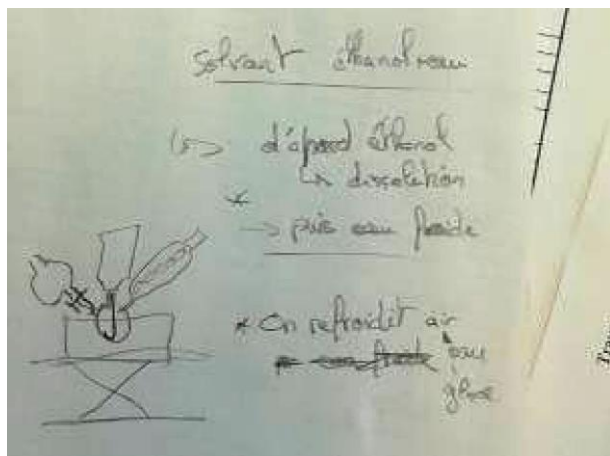 solvant éthanol eau
d'abord éthanol
↳ dissolution
* → puis eau froide
* On refroidit air
puis
glace